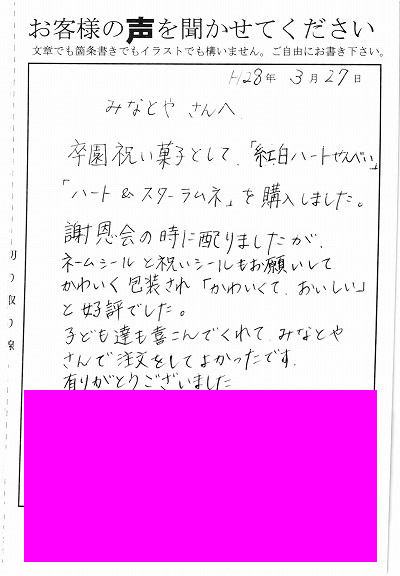 お客様の声を聞かせてください
文章でも箇条書きでもイラストでも構いません。ご自由にお書き下さい。
H28年 3月27日
みなとや さんへ
卒園祝い菓子として、「紅白ハートせんべい」
「ハート&スターラムネ」を購入しました。
謝恩会の時に配りましたが、
ネームシールと祝いシールもお願いして
かわいく包装され「かわいくて、おいしい」
と好評でした。
子ども達も喜こんでくれて、みなとや
さんで注文をしてよかったです。
有りがとうございました
切り取り線